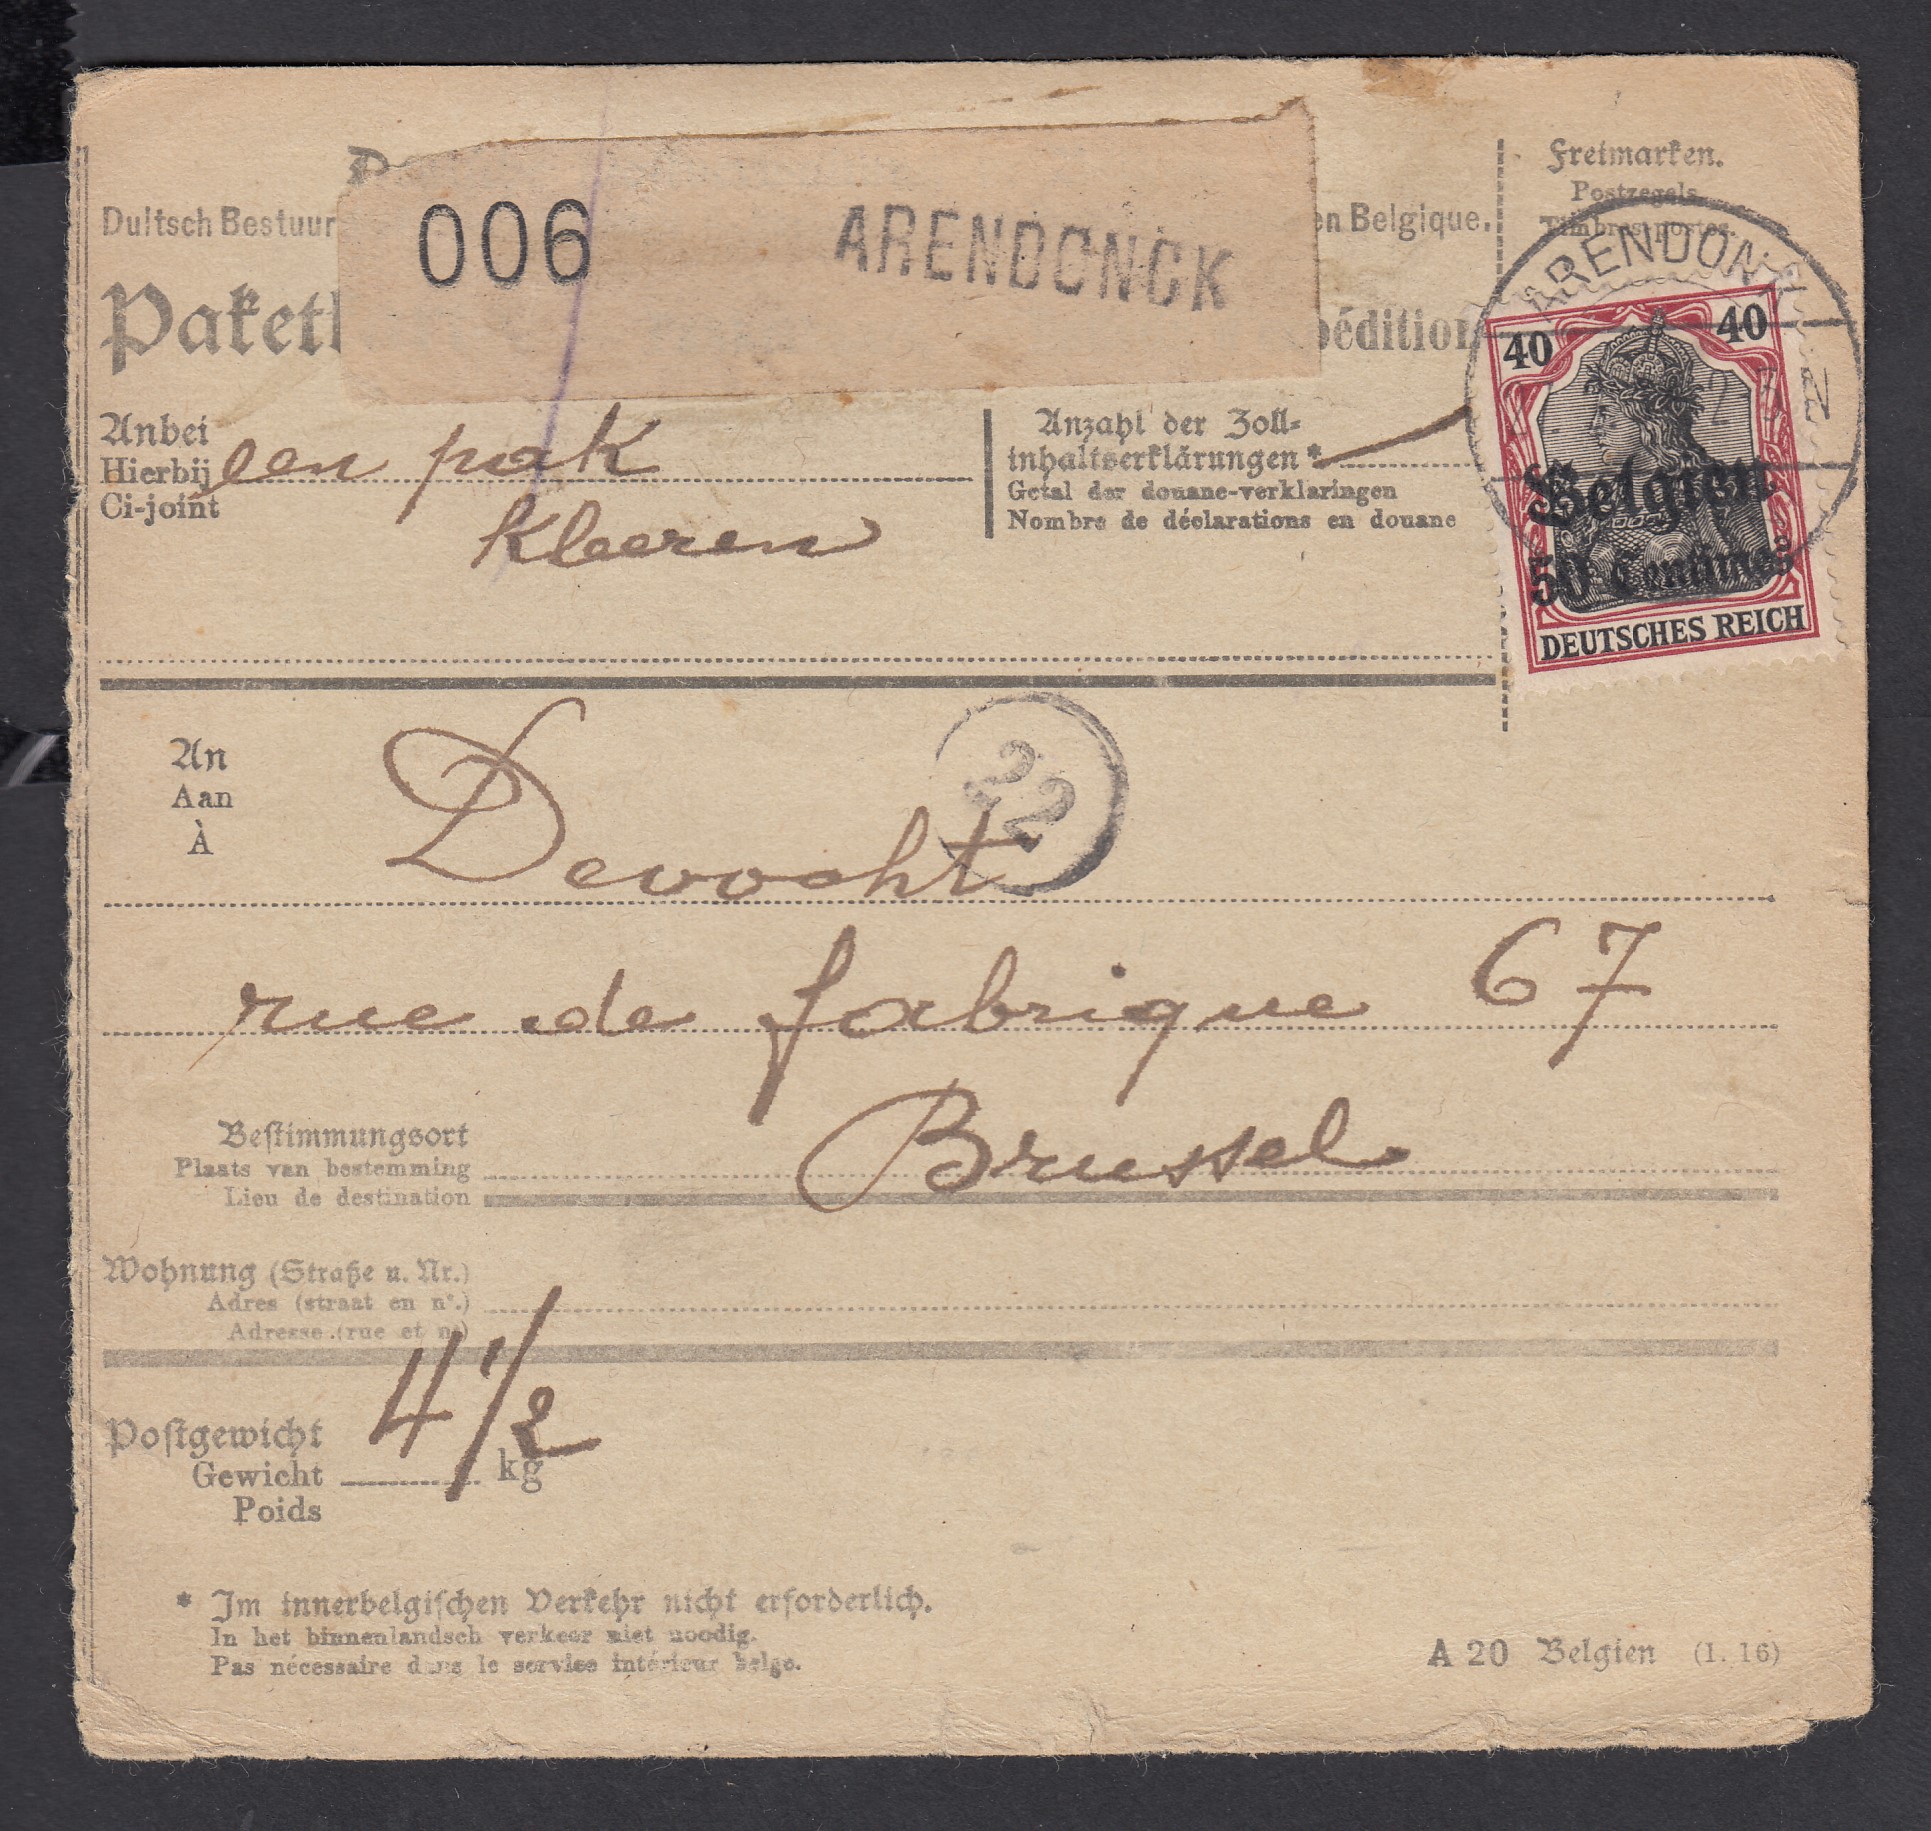 Freimarken.
Postzegels
Timbres-postes.
Duitsch Bestuur
en Belgique.
006
ARENDONCK
Paket
pédition
ARENDONK
40 40
Belgien
50 Centimes
DEUTSCHES REICH
Anbei
Hierbij een pak
Ci-joint
kleeren
Anzahl der Zoll-
inhaltserklärungen *
Getal der douane-verklaringen
Nombre de déclarations en douane
22
An
Aan
À
Devocht
rue de fabrique 67
Bestimmungsort
Plaats van bestemming
Lieu de destination
Brussel
Wohnung (Straße u. Nr.)
Adres (straat en n°.)
Adresse (rue et n°)
Postgewicht
Gewicht 4 1/2 kg
Poids
* Im innerbelgischen Verkehr nicht erforderlich.
In het binnenlandsch verkeer niet noodig.
Pas nécessaire dans le service intérieur belge.
A 20 Belgien (1. 16)